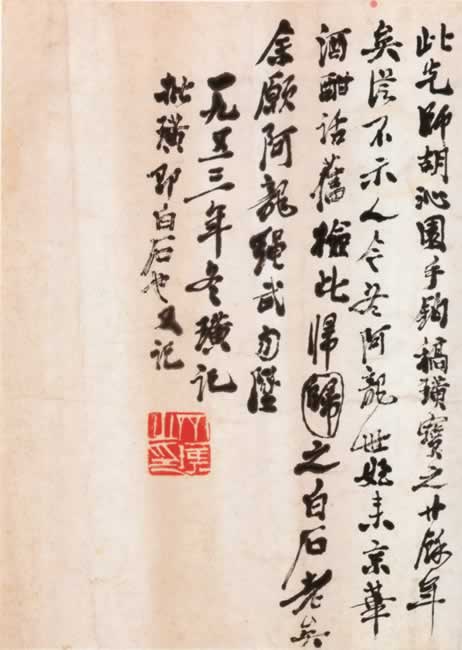 此先師胡沁園手鉤稿璜寶之廿餘年
矣從不示人今阿龍世姪来京華
酒酣話舊撿此歸歸之白石老矣
余願阿龍繩武勿墜
一九五三年冬璜記
璜即白石也又記